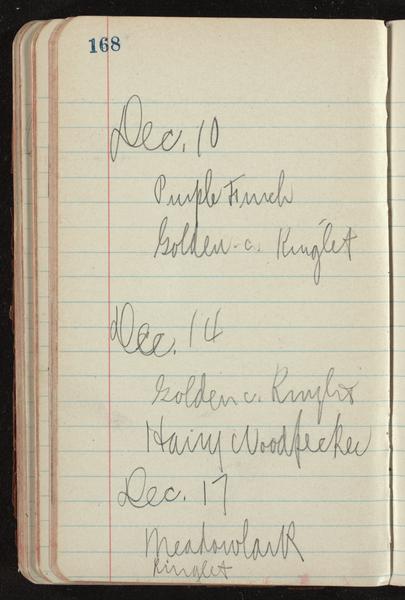 168
Dec. 10
Purple Finch
Golden-c. Kinglet
Dec. 14
Golden c. Kinglet
Hairy Woodpecker
Dec. 17
Meadowlark
Kinglet